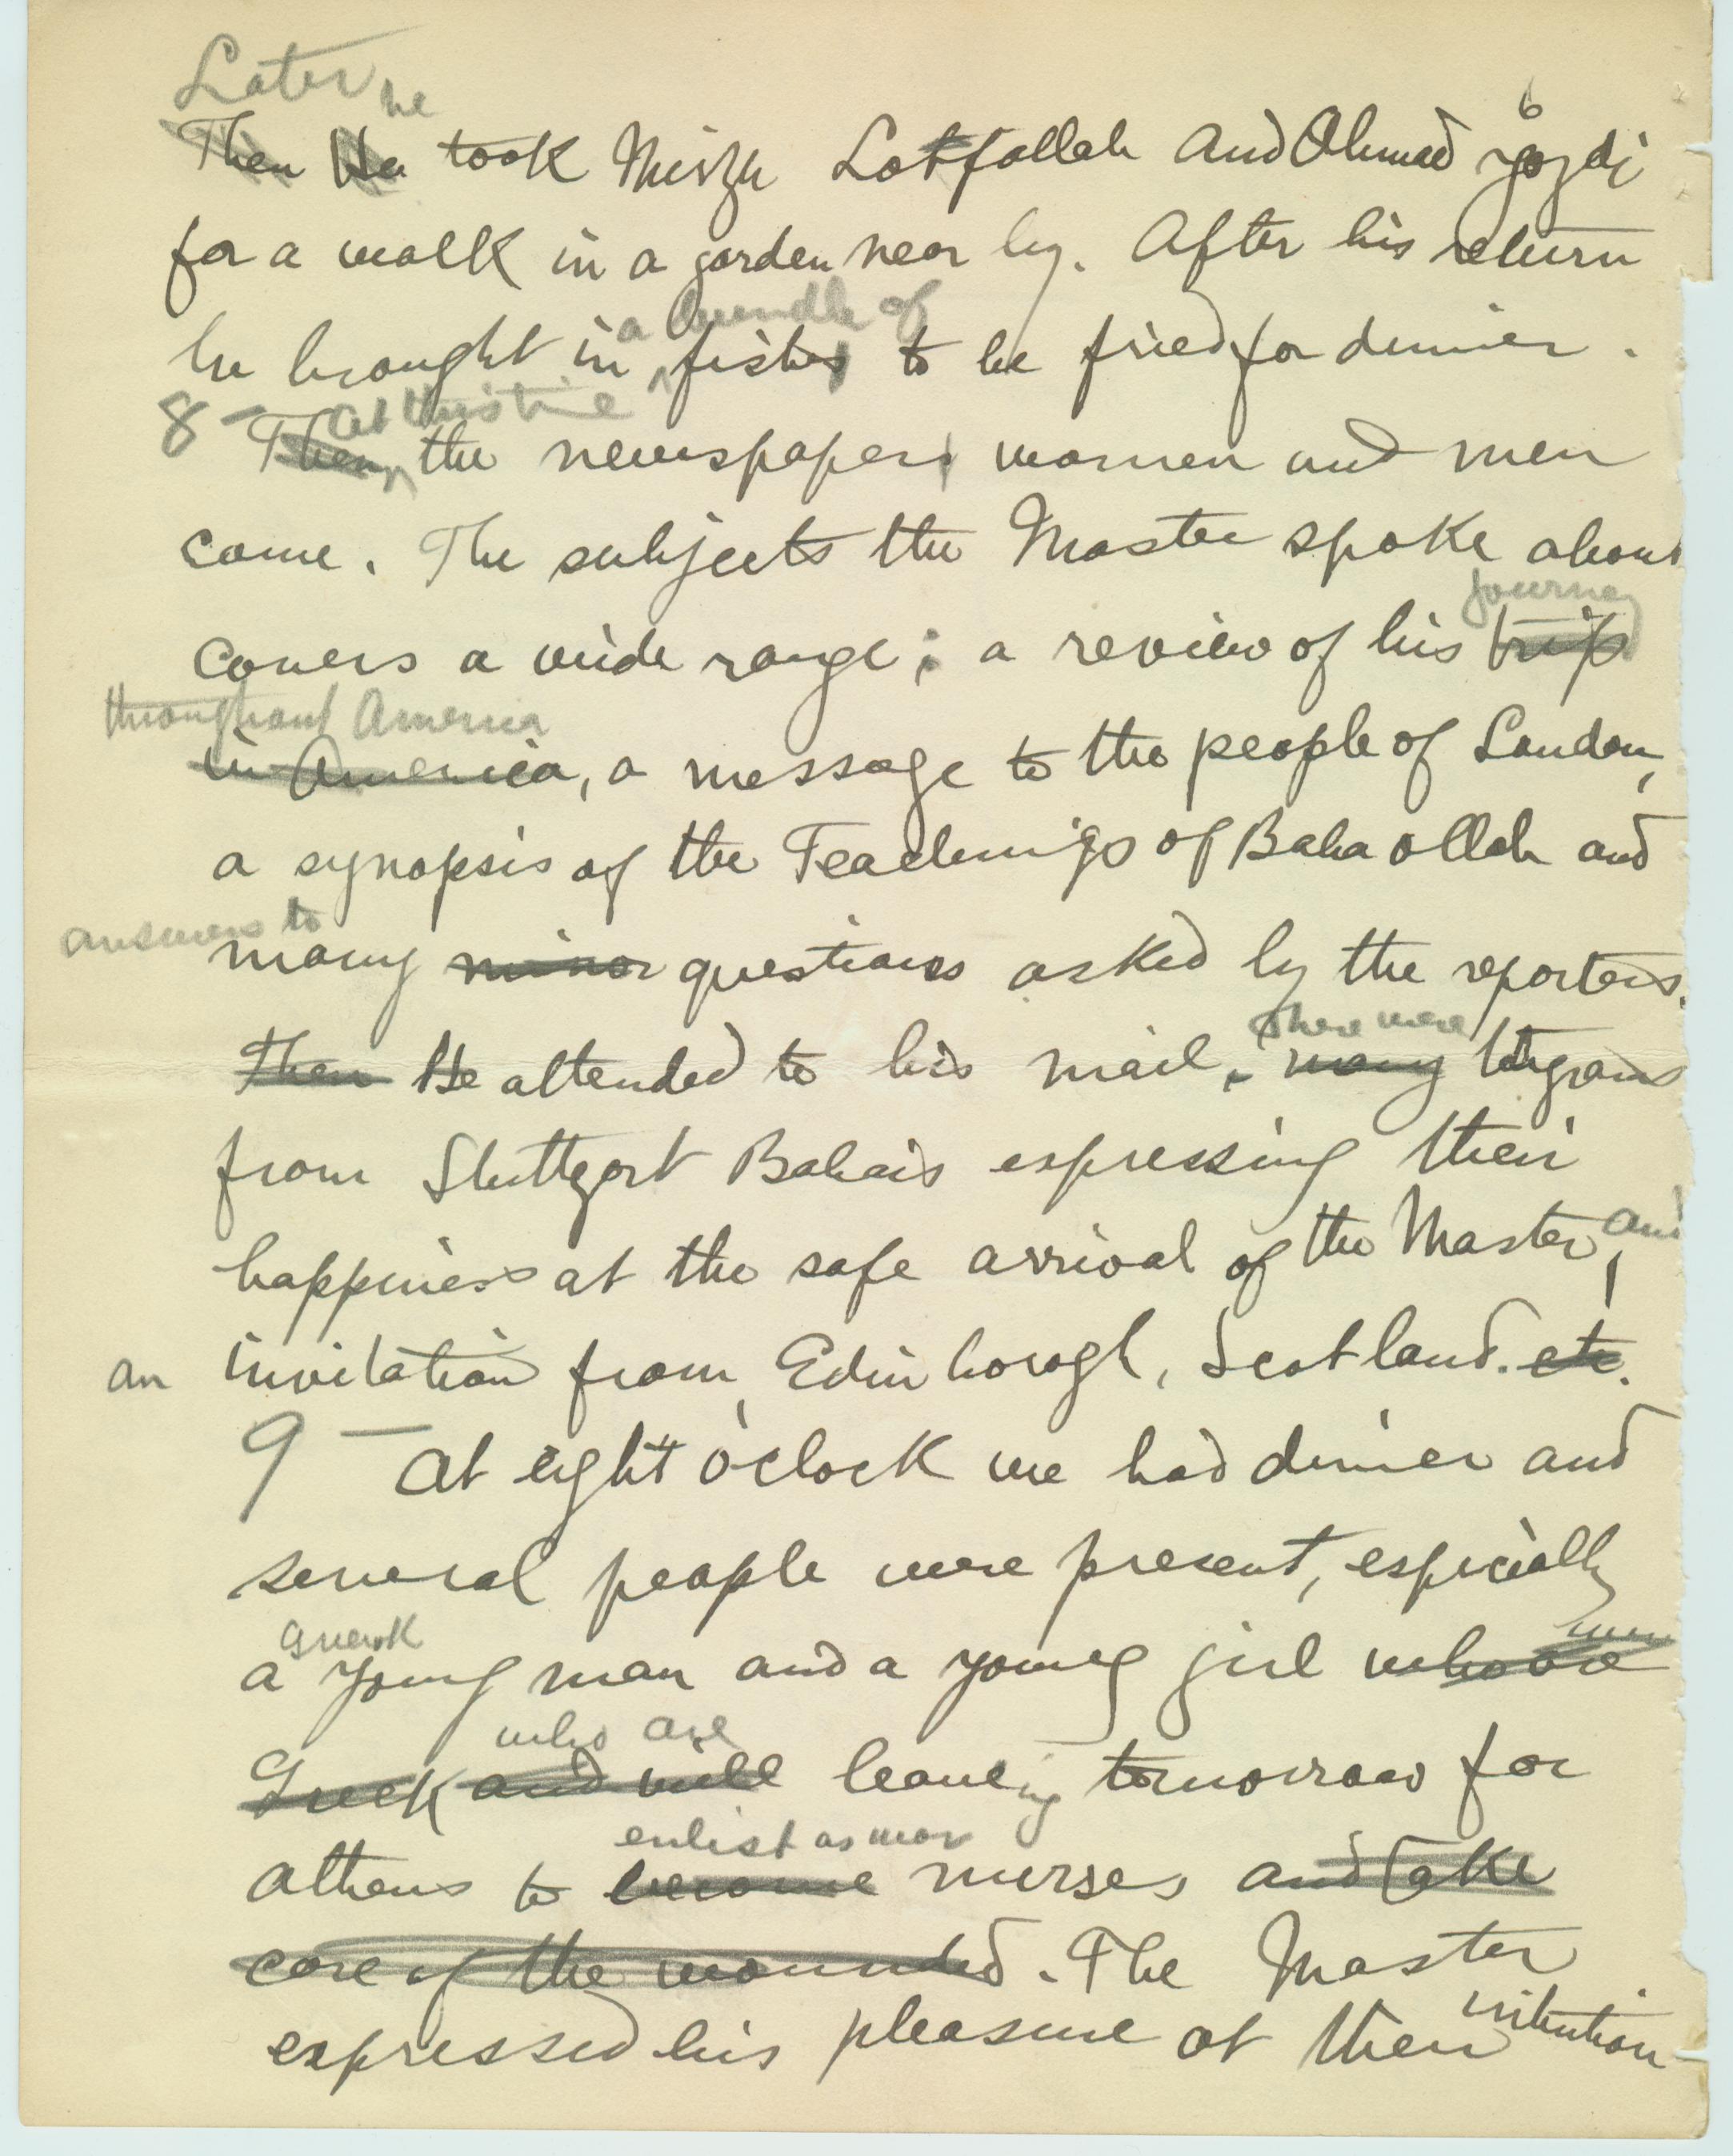 Later he
6
Then He took Mirza Lotfallah and Ahmad Yazdi
for a walk in a garden near by. After his return
a bundle of
he brought in fishes to be fried for dinner.
at this time
8 - Then the newspapers women and men
come. The subjects the Master spoke about
journey
covers a wide range; a review of his trip
throughout America
in America, a message to the people of London,
a synopsis of the Teachings of Baha ollah and
answers to
many minor questions asked by the reporters.
there were
Then He attended to his mail, many telegrams
from Stuttgart Bahais expressing their
happiness at the safe arrival of the Master, and
an invitation from Edinborogh, Scotland. etc.
9 - At eight o'clock we had dinner and
several people were present, especially
Greek
a young man and a young girl who are
who are
Greek and will leaveing tomorrow for
enlist as war
Athens to become nurses and take
care of the wounded. The Master
expressed his pleasure at their intention